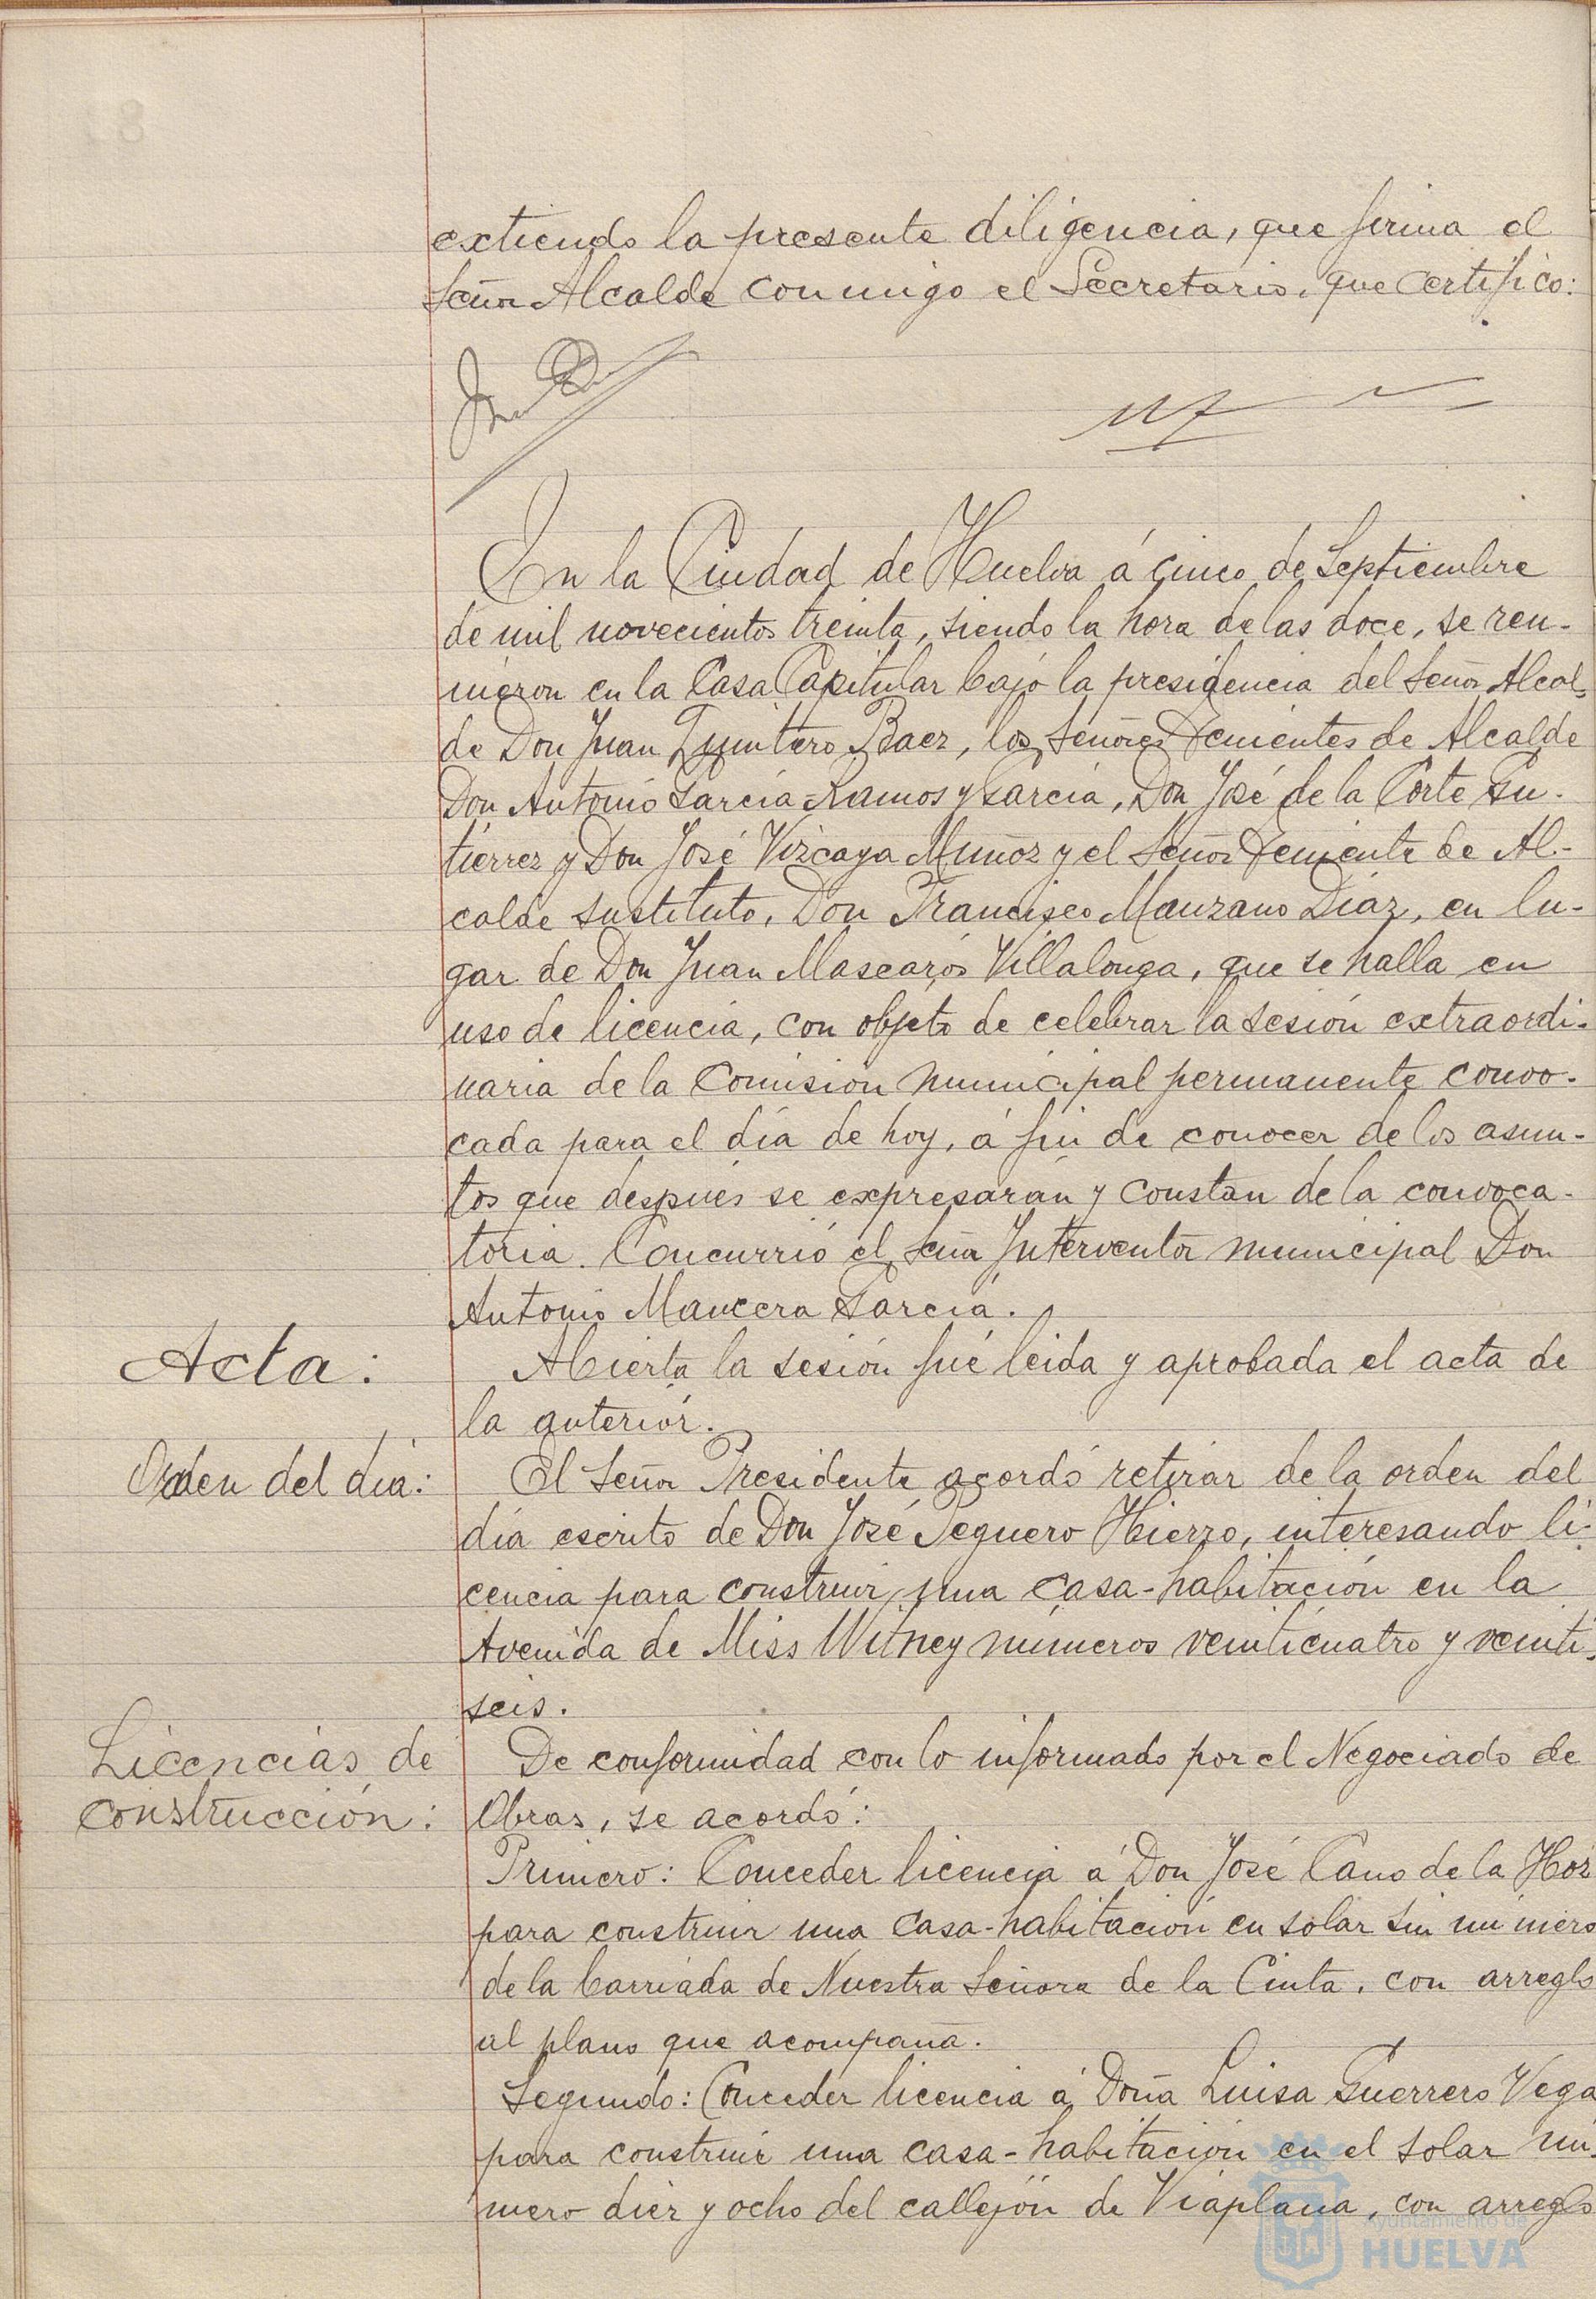 extiendo la presente diligencia, que firma el
Señor Alcalde conmigo el Secretario, que certifico:
En la Ciudad de Huelva á cinco de Septiembre
de mil novecientos treinta, siendo la hora de las doce, se reu-
nieron en la Casa Capitular bajo la presidencia del Señor Alcal-
de Don Juan Quintero Baez, los Señores Tenientes de Alcalde
Don Antonio García-Ramos y García, Don José de la Corte Gu-
tierrez y Don José Vizcaya Muñoz y el Señor Teniente de Al-
calde sustituto, Don Francisco Manzano Díaz, en lu-
gar de Don Juan Mascarós Villalonga, que se halla en
uso de licencia, con objeto de celebrar la sesión extraordi-
naria de la Comisión municipal permanente convo-
cada para el día de hoy, á fin de conocer de los asun-
tos que después se expresarán y constan de la convoca-
toria. Concurrió el Señor Interventor municipal Don
Antonio Mancera García.
Acta:
Abierta la sesión fué leida y aprobada el acta de
la anterior.
Orden del día:
El Señor Presidente acordó retirar de la orden del
día escrito de Don José Peguero Hierro, interesando li-
cencia para construir una casa-habitación en la
Avenida de Miss Witney números veinticuatro y veinti-
seis.
Licencias de
construcción:
De conformidad con lo informado por el Negociado de
Obras, se acordó:
Primero: Conceder licencia á Don José Cano de la Hoz
para construir una casa-habitación en solar sin número
de la barriada de Nuestra Señora de la Cinta, con arreglo
al plano que acompaña.
Segundo: Conceder licencia á Doña Luisa Guerrero Vega
para construir una casa-habitación en el solar nú-
mero diez y ocho del callejón de Viaplana, con arreglo
Ayuntamiento de
HUELVA